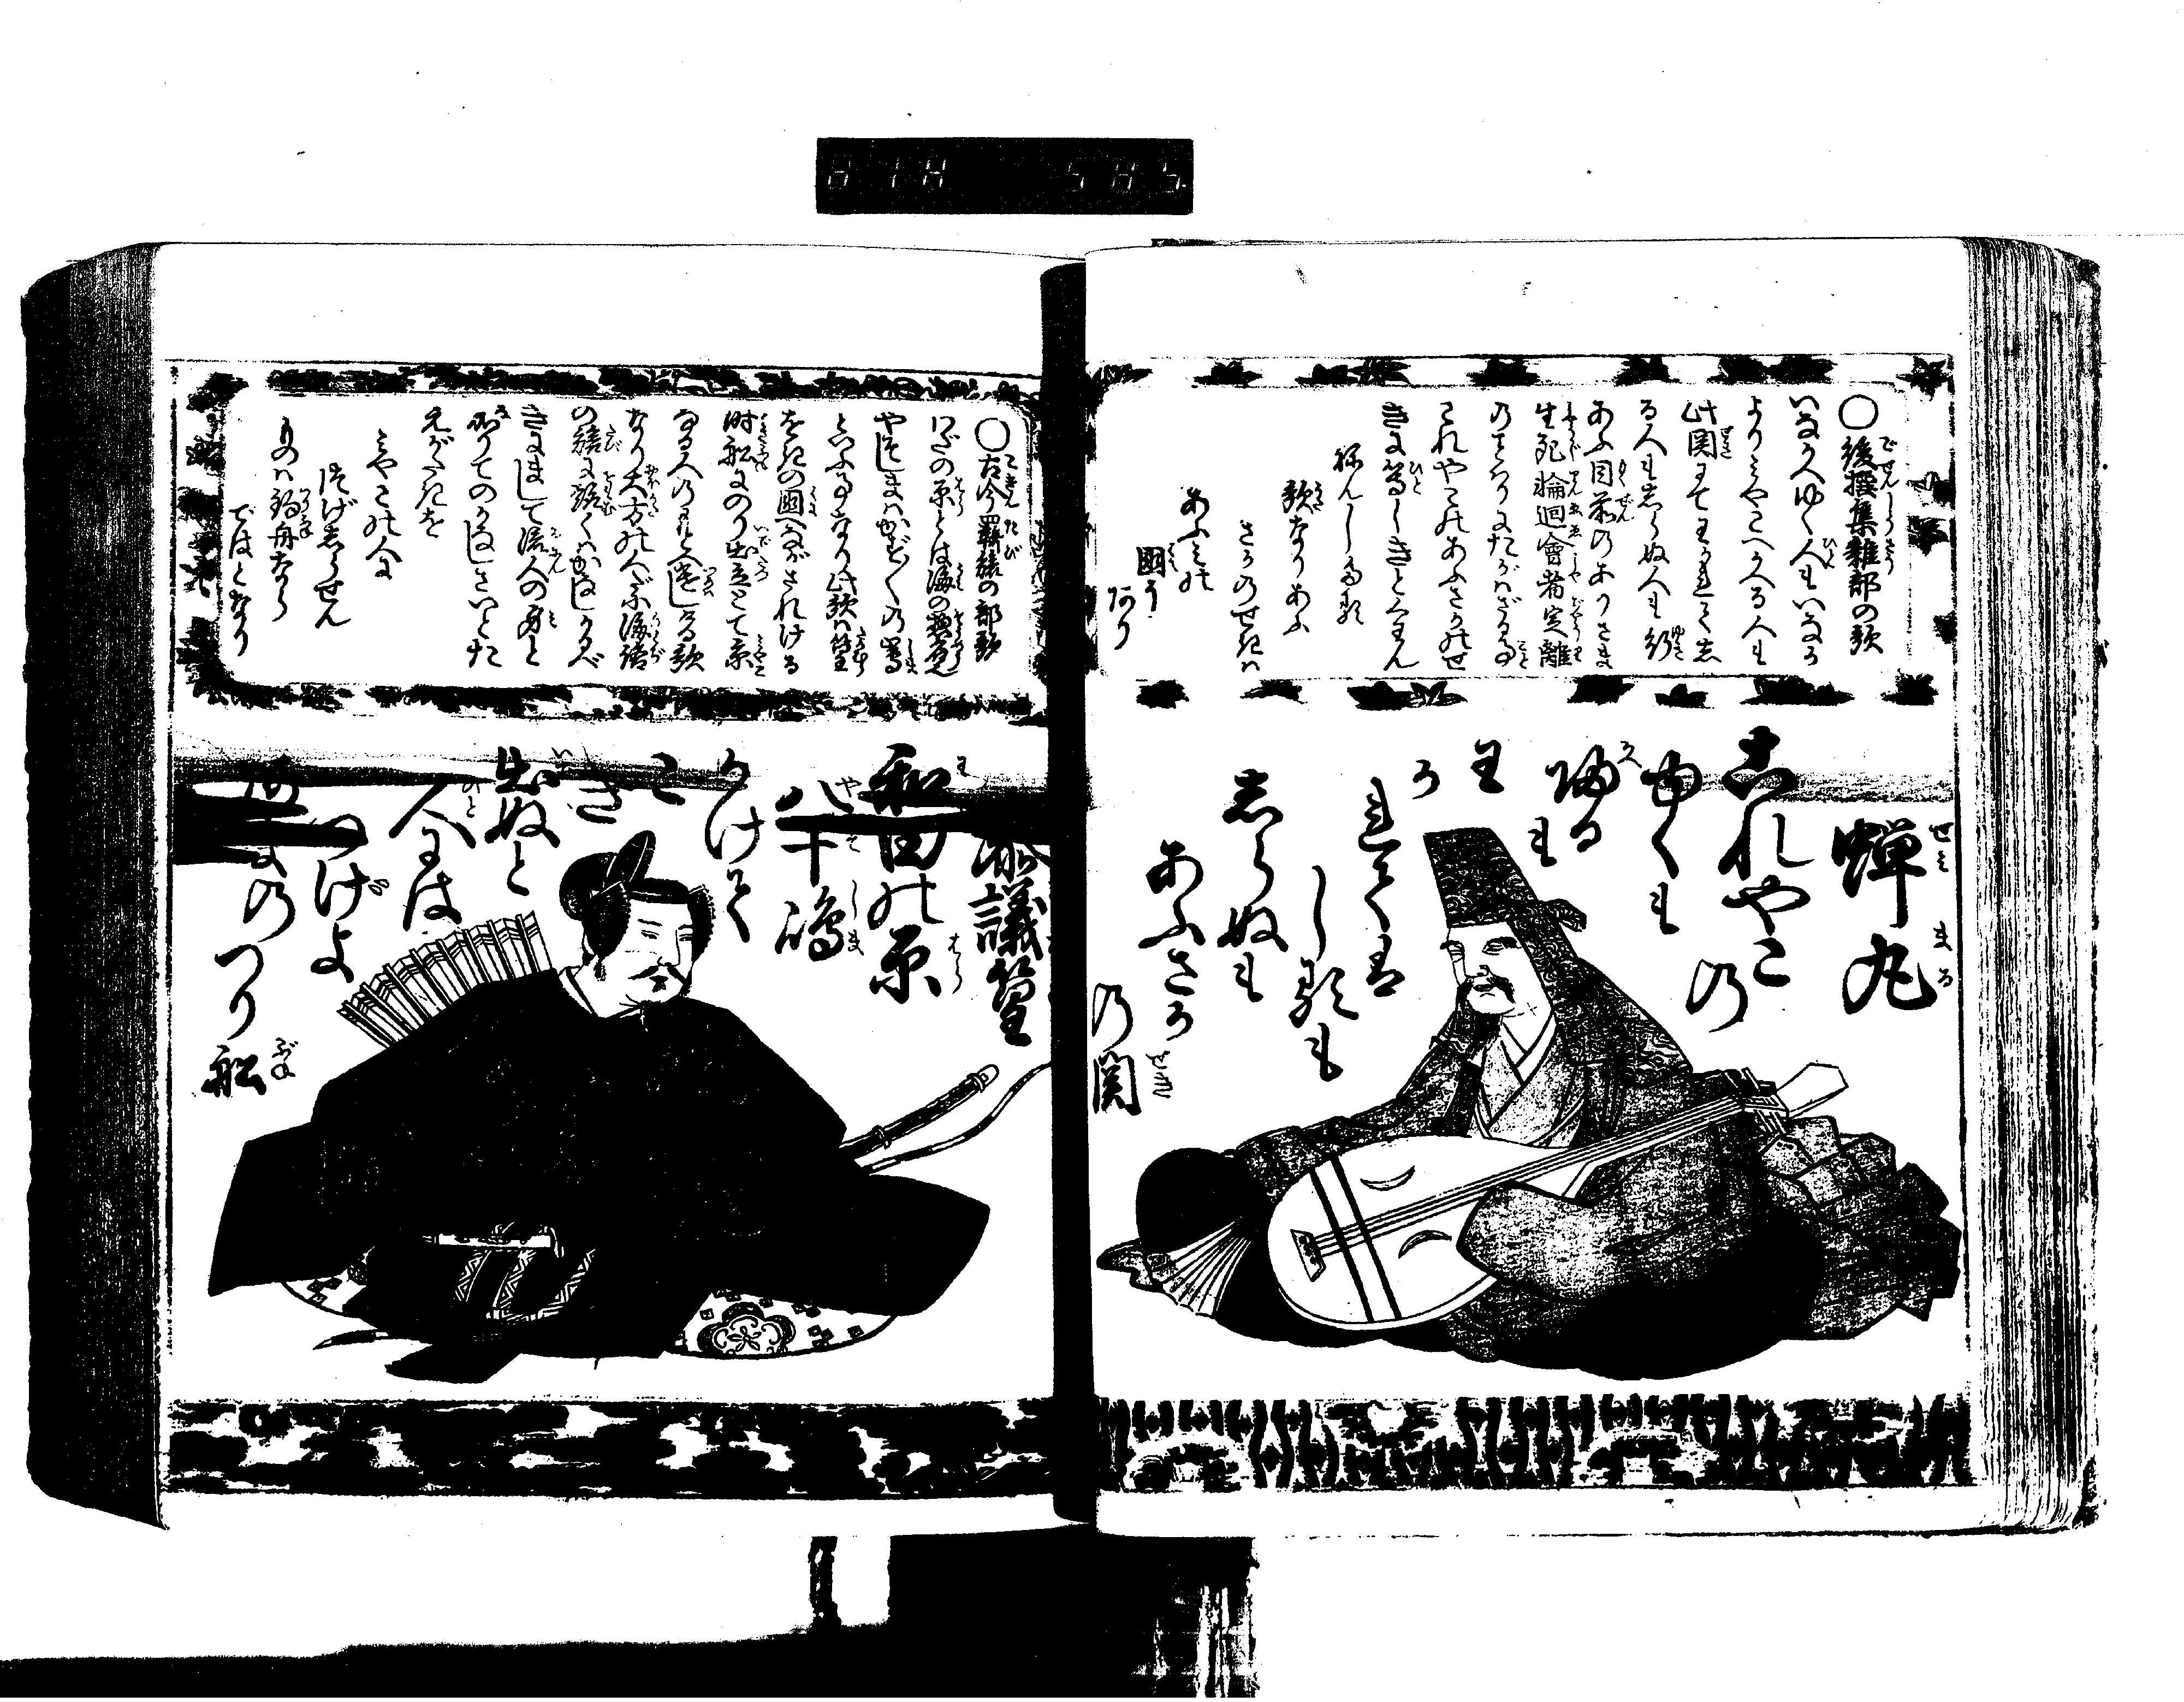 〇後撰集雑部の歌
いなかへゆく人もいなか
よりみやこへかへる人も
此関にてわかれてく志
る人も志らぬ人も行
あふ目前のありさま
生死輪廻會者定離
のことわりにたがハざる事
これやこのあふさかのせ
きに等しきと令せん
歌なりあふ
さかのせきハ
あふみの
國に
あり
蝉丸
これやこの
ゆくも
帰るも
わか
れては
しるも
志らぬも
あふさか
の関
〇古今羇旅の部歌
わだの原とは海の惣名
やそしまハかず〱の嶋
といふ事なり此歌ハ篁
をきの國へながされける
時船にのり出立とて京
なる人のもとへ遣しける歌
なり大方の人だに海路
の旅に趣くハかなしかるべ
きにまして流人の身と
なりてのかなしさいとた
えがたきを
みやこの人に
つげ志らせん
ものハ釣舟なら
ではとなり
議篁
和田の原
八十嶋
かけて
こぎ
出ぬと
人には
つげよ
海士のつり船